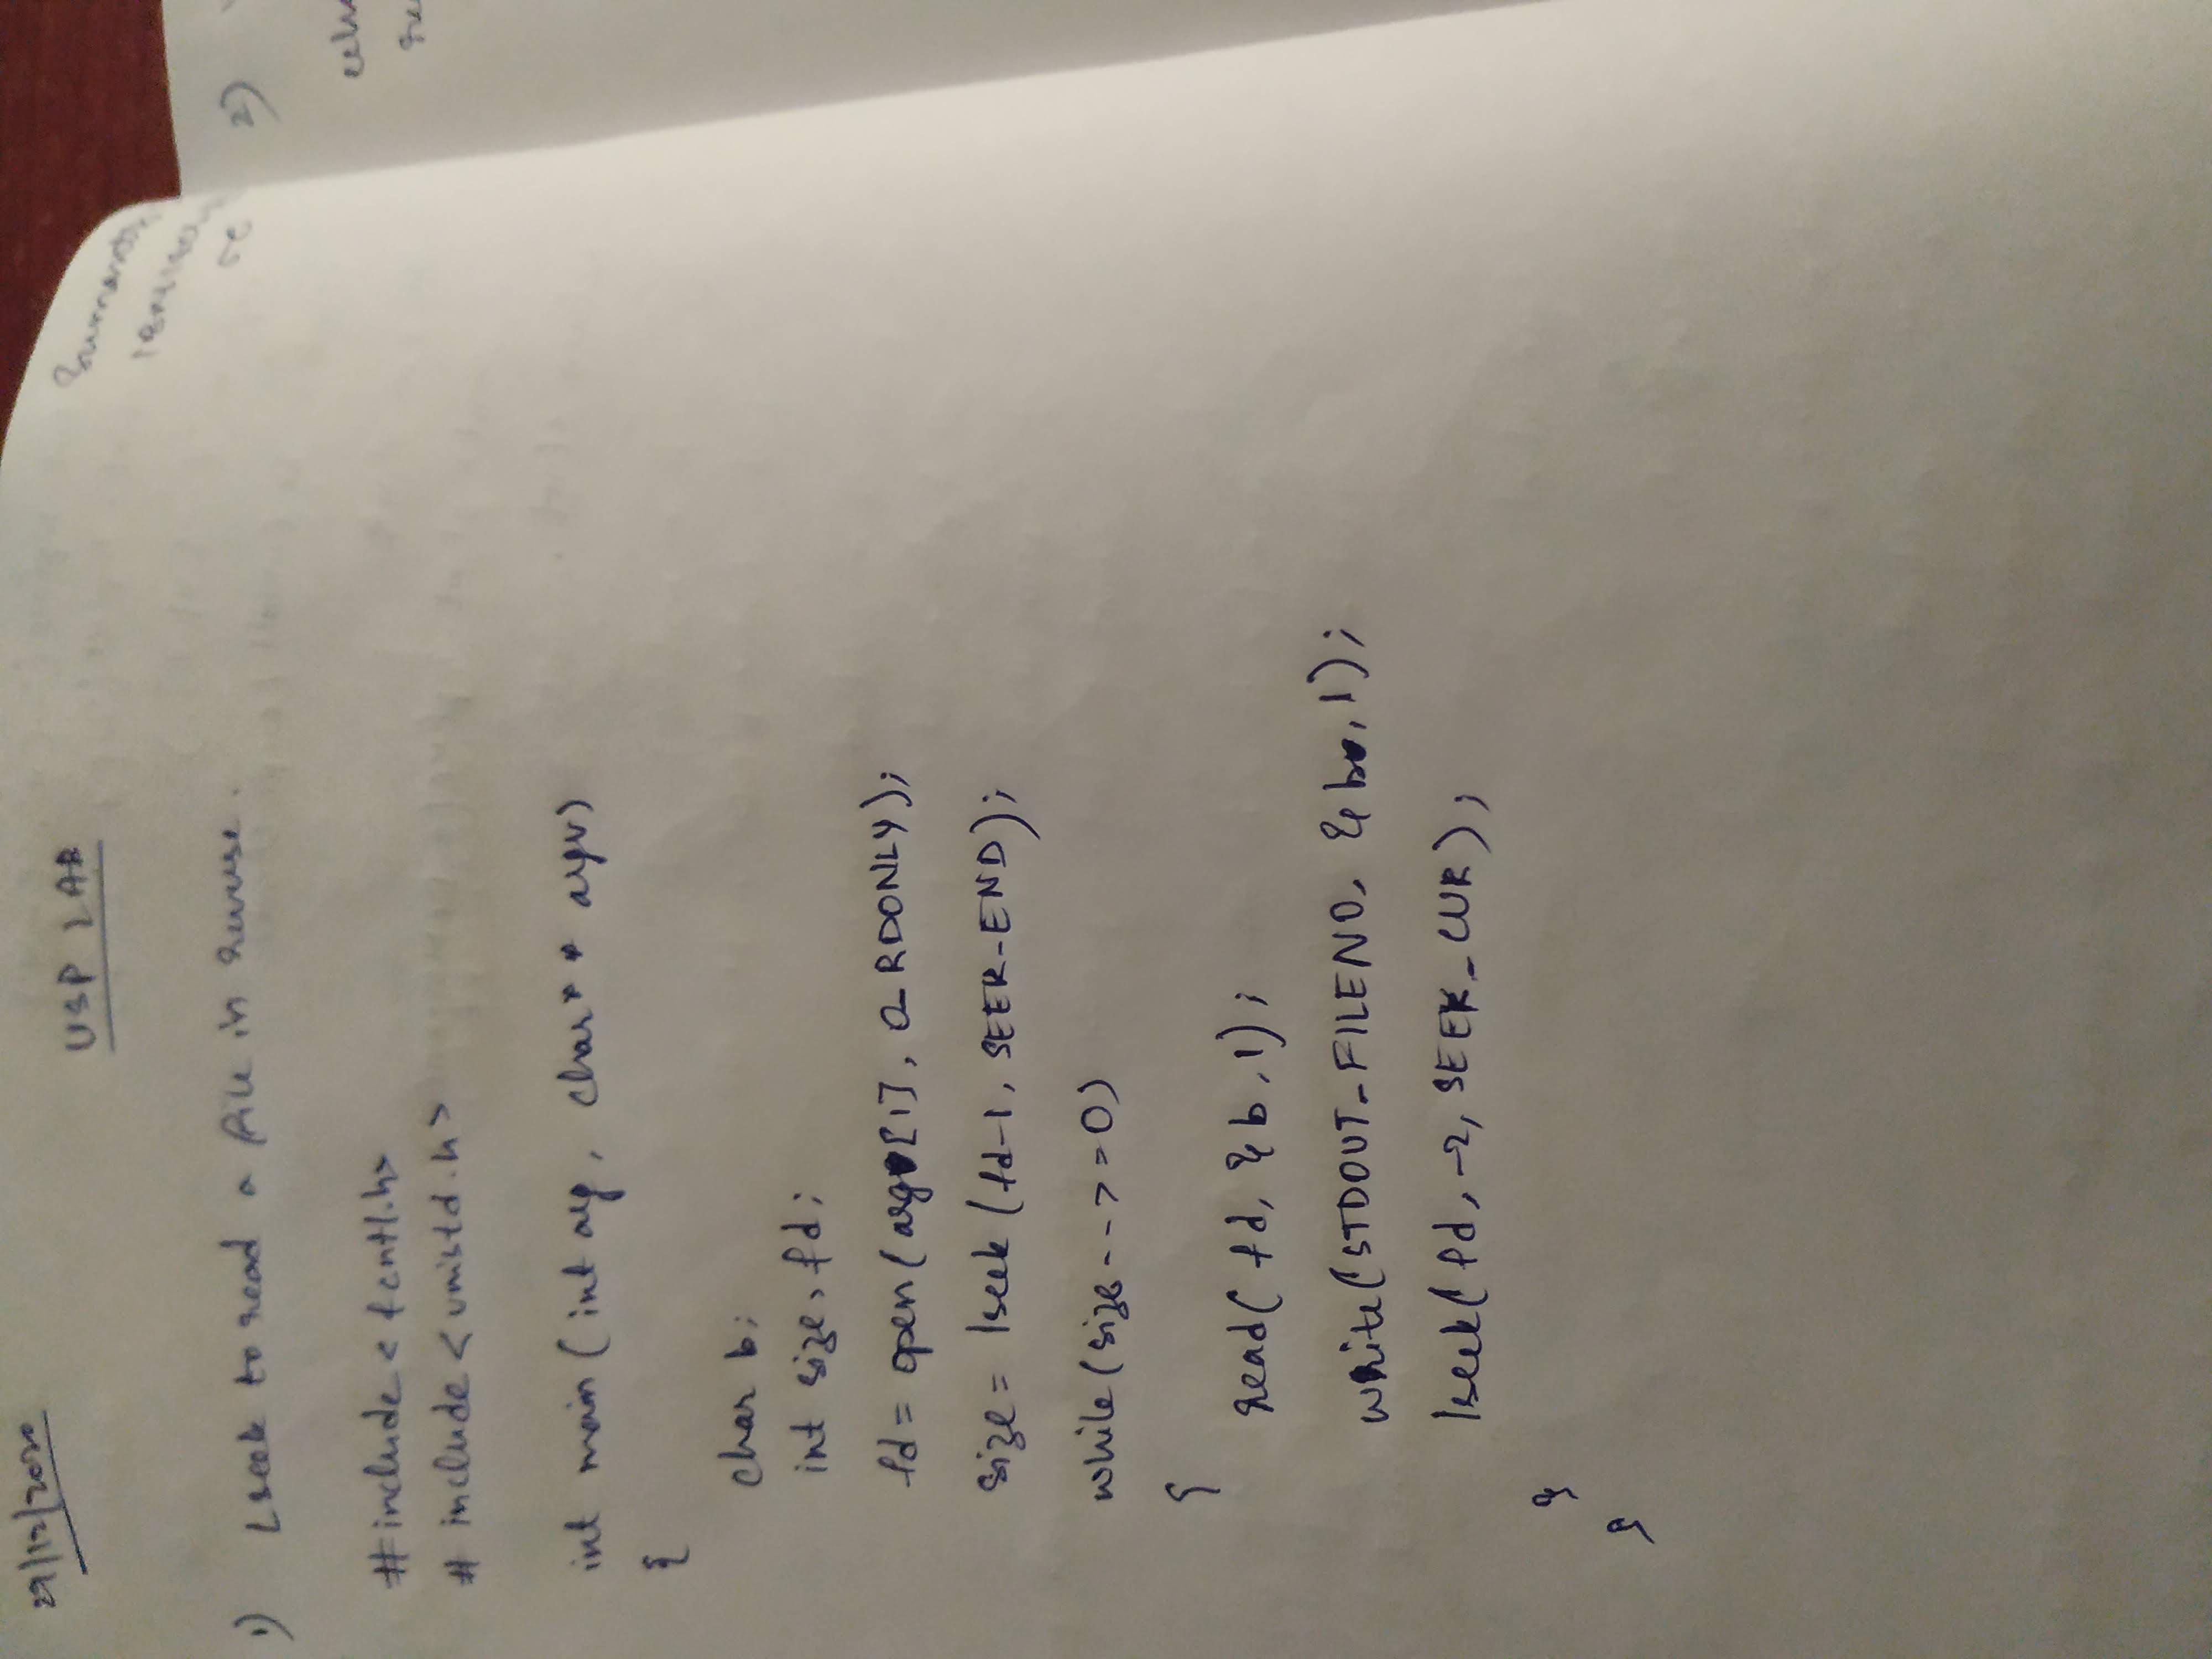 29/12/2020
USP LAB
1) Lseek to read a file in reverse.
#include <fcntl.h>
# include <unistd.h>
int main (int arg, char** argv)
{
char b;
int size, fd;
fd = open(argv[1], O_RDONLY);
size = lseek (fd-1, SEEK_END);
while (size-->=0)
{
read( fd, &b, 1);
write(STDOUT_FILENO, &b, 1);
lseek( fd, -2, SEEK_CUR);
}
}
2)